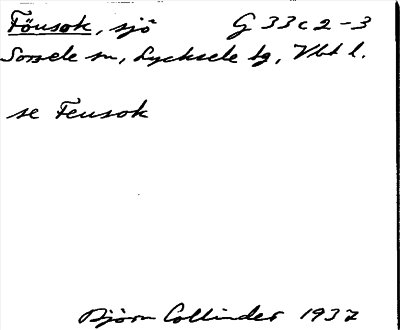 Föusok, sjö G 33 c 2-3
Sorsele sn, Lycksele tg, Vbt l.
se Feusok
Björn Collinder 1937